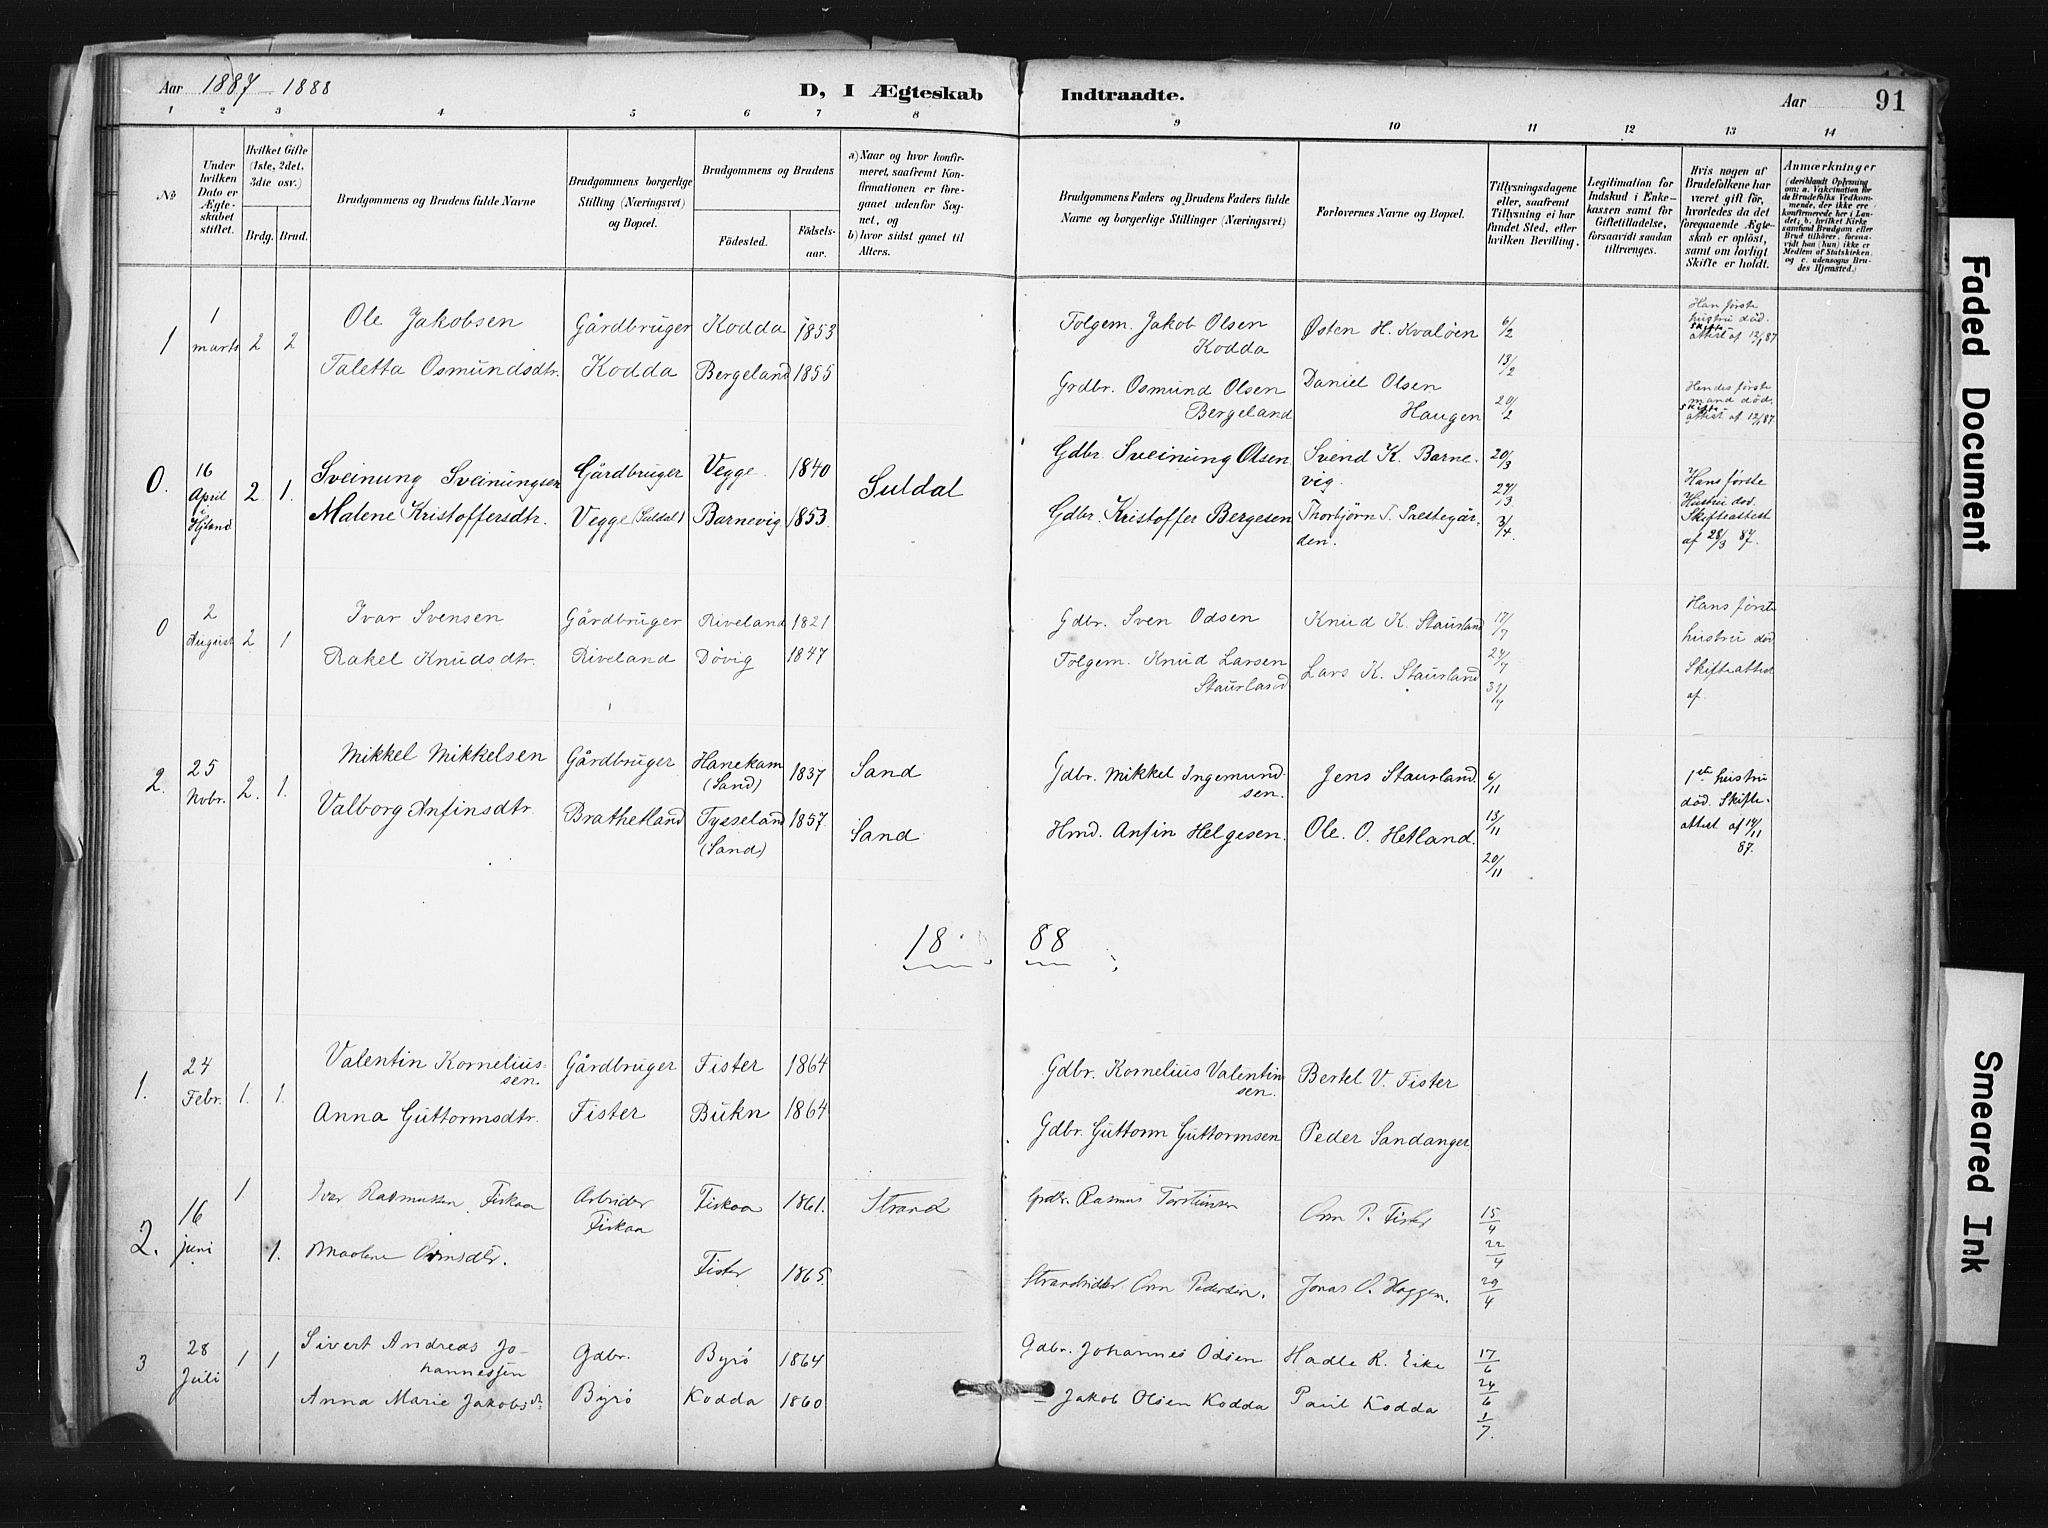 Aar 1887-1888
D, I Ægteskab Indtraadte.
Aar 91
1 2 3 4 5 6 7 8 9 10 11 12 13 14
No
Under hvilken Dato er Ægteskabet stiftet.
Hvilket Gifte (1ste, 2det, 3die osv.)
Brdg. Brud.
Brudgommens og Brudens fulde Navne
Brudgommens borgerlige Stilling (Næringsvei) og Bopæl.
Brudgommens og Brudens
Fødested. Fødselsaar.
a) Naar og hvor konfirmeret, saafremt Konfirmationen er foregaaet udenfor Sognet, og
b) hvor sidst gaaet til Alters.
Brudgommens Faders og Brudens Faders fulde Navne og borgerlige Stillinger (Næringsvei)
Forlovernes Navne og Bopæl.
Tillysningsdagene eller, saafremt Tillysning ei har fundet Sted, efter hvilken Bevilling.
Legitimation for Indskud i Enkekassen samt for Giftetilladelse, forsaavidt saadan tiltrænges.
Hvis nogen af Brudefolkene har været gift før, hvorledes da det foregaaende Ægteskab er opløst, samt om lovligt Skifte er holdt.
Anmærkninger (deriblandt Oplysning om: a. Vakcination for de Brudefolks Vedkommende, der ikke ere konfirmerede her i Landet; b. hvilket Kirkesamfund Brudgom eller Brud tilhører, forsaavidt han (hun) ikke er Medlem af Statskirken, og c. udensogns Brudes Hjemsted.)
1 1 marts 2 2 Ole Jakobsen Gårdbruger Kodda 1853 Folgem. Jakob Olsen Kodda Østen H. Kvaløen 6/2 13/2 20/2 Han første hustru död. Skifteattest af 12/1 87
Taletta Osmundsdtr. Kodda Bergeland 1855 Grdbr. Osmund Olsen Bergeland Daniel Olsen Haugen Hendes første mand död. Skifteattest af 12/1 87
0. 16 April i Hjland 2. 1. Sveinung Sveinungsen Gårdbruger Vegge 1840 Suldal Gdbr. Sveinung Olsen Svend K. Barnevig. 20/3 27/3 3/4. Hans første Hustru död. Skifteattest af 28/3 87.
Malene Kristoffersdtr. Vegge (Suldal) Barnevig 1853 Gdbr. Kristoffer Bergesen Thorbjörn T. Prestegården.
0 2 August 2 1 Ivar Svensen Gårdbruger Riveland 1821 Gdbr. Sven Odsen Knud K. Staurland 17/7 24/7 31/7 Hans første hustru död Skifteattest af.
Rakel Knudsdtr. Riveland Dövig 1847 Folgem. Knud Larsen Staurland Lars K. Staurland
2. 25 Nvbr. 2. 1. Mikkel Mikkelsen Gårdbruger Hanekam (Sand) 1837 Sand Gdbr. Mikkel Ingemundsen. Jens Staurland 6/11 13/11 20/11 1ste hustru död. Skifteattest af 14/11 87.
Valborg Anfinsdtr. Brathetland Tysseland (Sand) 1857 Sand Hmd. Anfin Helgesen. Ole. O. Hetland.
18 88
1. 24 Febr. 1. 1. Valentin Korneliussen. Gårdbruger Fister 1864 Gdbr. Kornelius Valentinsen. Bertel V. Fister
Anna Guttormsdtr. Fister Bukn 1864 Gdbr. Guttorm Guttormsen Peder Sandanger
2. 16 juni 1 Ivar Rasmussen Fiskaa Arbeider Fiskaa Fiskaa 1861. Strand Grdbr. Rasmus Torsteinsen Orm P. Fister 15/4 22/4 29/4
1. Maalene Ormsdtr. Fister 1865. Strandsidder Orm Pedersen. Jonas O. Haggen.
3 28 Juli 1 1 Sivert Andreas Johannessen Gdbr. Byrö 1864 Gdbr. Johannes Odsen Hadle R. Eike 17/6 24/6 1/7.
Anna Marie Jakobsdr. Byrö Kodda 1860 Jakob Olsen Kodda Paul Kodda
Faded Document
Smeared Ink